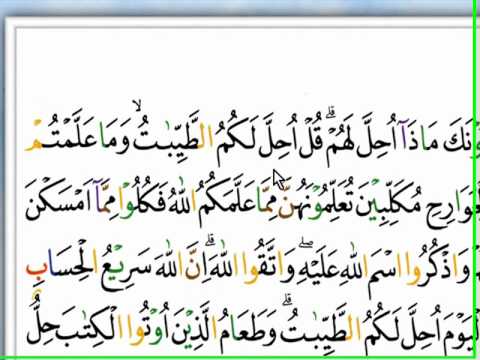 وْنَكَ مَاذَآ اُحِلَّ لَهُمْ ۗ قُلْ اُحِلَّ لَكُمُ الطَّيِّبٰتُ ۙ وَمَا عَلَّمْتُمْ
مُكَلِّبِيْنَ تُعَلِّمُوْنَهُنَّ مِمَّا عَلَّمَكُمُ اللّٰهُ فَكُلُوْا مِمَّآ اَمْسَكْنَ
وَاذْكُرُوا اسْمَ اللّٰهِ عَلَيْهِ ۖ وَاتَّقُوا اللّٰهَ ۗ اِنَّ اللّٰهَ سَرِيْعُ الْحِسَابِ
لْيَوْمَ اُحِلَّ لَكُمُ الطَّيِّبٰتُ ۗ وَطَعَامُ الَّذِيْنَ اُوْتُوا الْكِتٰبَ حِلٌّ